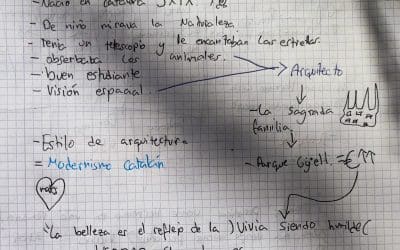 - Nació en Cataluña
- De niño miraba la Naturaleza.
- Tenía un telescopio y le encantaban las estrellas.
- abserbaba los animales.
- buen estudiante.
- Visión espacial
Arquitecto
- La Sagrada
familia
- Estilo de arquitectura
= Modernismo Catalán
- Parque Güell. = € ↑↑
"La belleza es el reflejo de la
) Vivía siendo humilde (